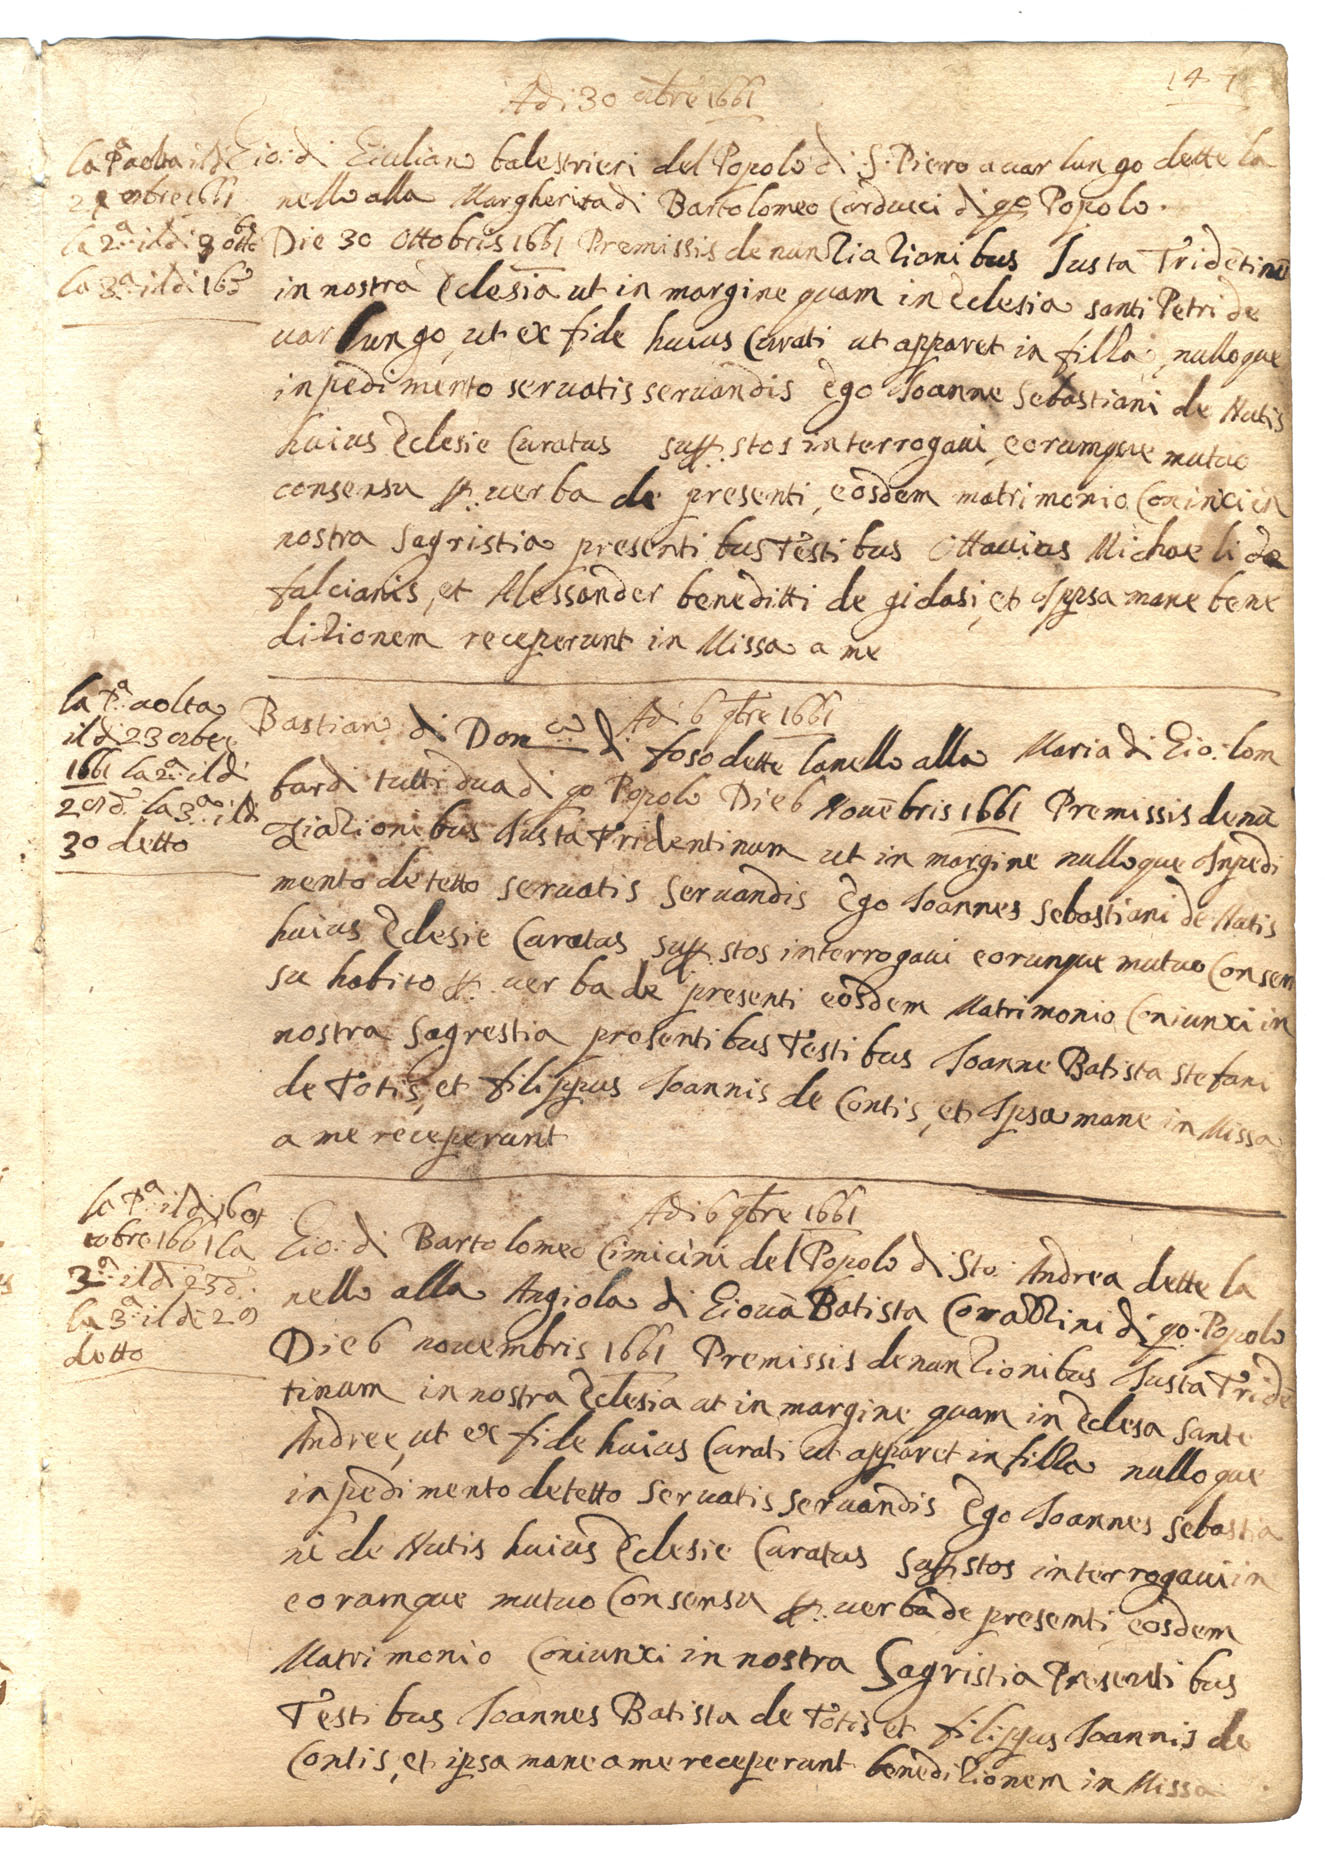 147
Adi 30 8bre 1661
la Pa uolta il di
29 7mbre 1661
la 2a il di 9 8bre
la 3a il di 16 do
Gio: di Giuliano balestrieri del Popolo di S. Piero a uar lungo dette la
nello alla Margherita di Bartolomeo Carducci di qo Popolo.
Die 30 Ottobris 1661 Premissis denunziazionibus Iusta Tridētinū
in nostra Eclesia ut in margine quam in Eclesia santi Petri de
uar lungo, ut ex fide huius Curati ut apparet in filla, nulloque
inpedimento seruatis seruandis Ego Ioanne Sebastiani de Nutis
huius Eclesie Curatus supp.stos interrogaui, eorumque mutuo
consensu p. uerba de presenti, eosdem matrimonio Coniunxi in
nostra Sagristia presentibus Testibus Ottauius Michaeli de
falcianis, et Alessander beneditti de gidasi, et Ipsa mane bene
dizionem receperunt in Missa a me
la Pa uolta
il di 23 8bre
1661 la 2a il di
28 do. la 3a il di
30 detto
Adi 6 9bre 1661
Bastiano di Domco di foso dette lanello alla Maria di Gio: lom
bardi tutti dua di qo Popolo Die 6 Nouēbris 1661 Premissis denū
ziazionibus Iusta Tridentinum ut in margine nulloque Inpedi
mento detetto seruatis Seruandis Ego Ioannes Sebastiani de Nutis
huius Eclesie Curatus supp.stos interrogaui eorunque mutuo Consen
su habito p. uerba de presenti eosdem Matrimonio Coniunxi in
nostra Sagrestia presentibus Testibus Ioanne Batista Stefani
de Totis, et filippus Ioannis de Contis, et Ipsa mane in Missa
a me receperunt
la Pa il di 16 ot
tobre 1661 la
3a il di 23 d.
la 3a il di 28
detto
Adi 6 9bre 1661
Gio: di Bartolomeo Cimicini del Popolo di Sto: Andrea dette la
nello alla Angiola di Giouā Batista Corazzini di qo. Popolo
Die 6 nouembris 1661 Premissis denunzionibus Iusta Tridē
tinum in nostra Eclesia ut in margine quam in Eclesa Sante
Andree, ut ex fide huius Curati ut apparet in filla nulloque
inpedimento detetto Seruatis Seruandis Ego Ioannes Sebastia
ni de Nutis huius Eclesie Curatus supp.stos interrogaui in
eorumque mutuo Consensu p. uerba de presenti eosdem
Matrimonio Coniunxi in nostra Sagristia Presentibus
Testibus Ioannes Batista de Totis et filippus Ioannis de
Contis, et ipsa mane a me receperunt benedizionem in Missa